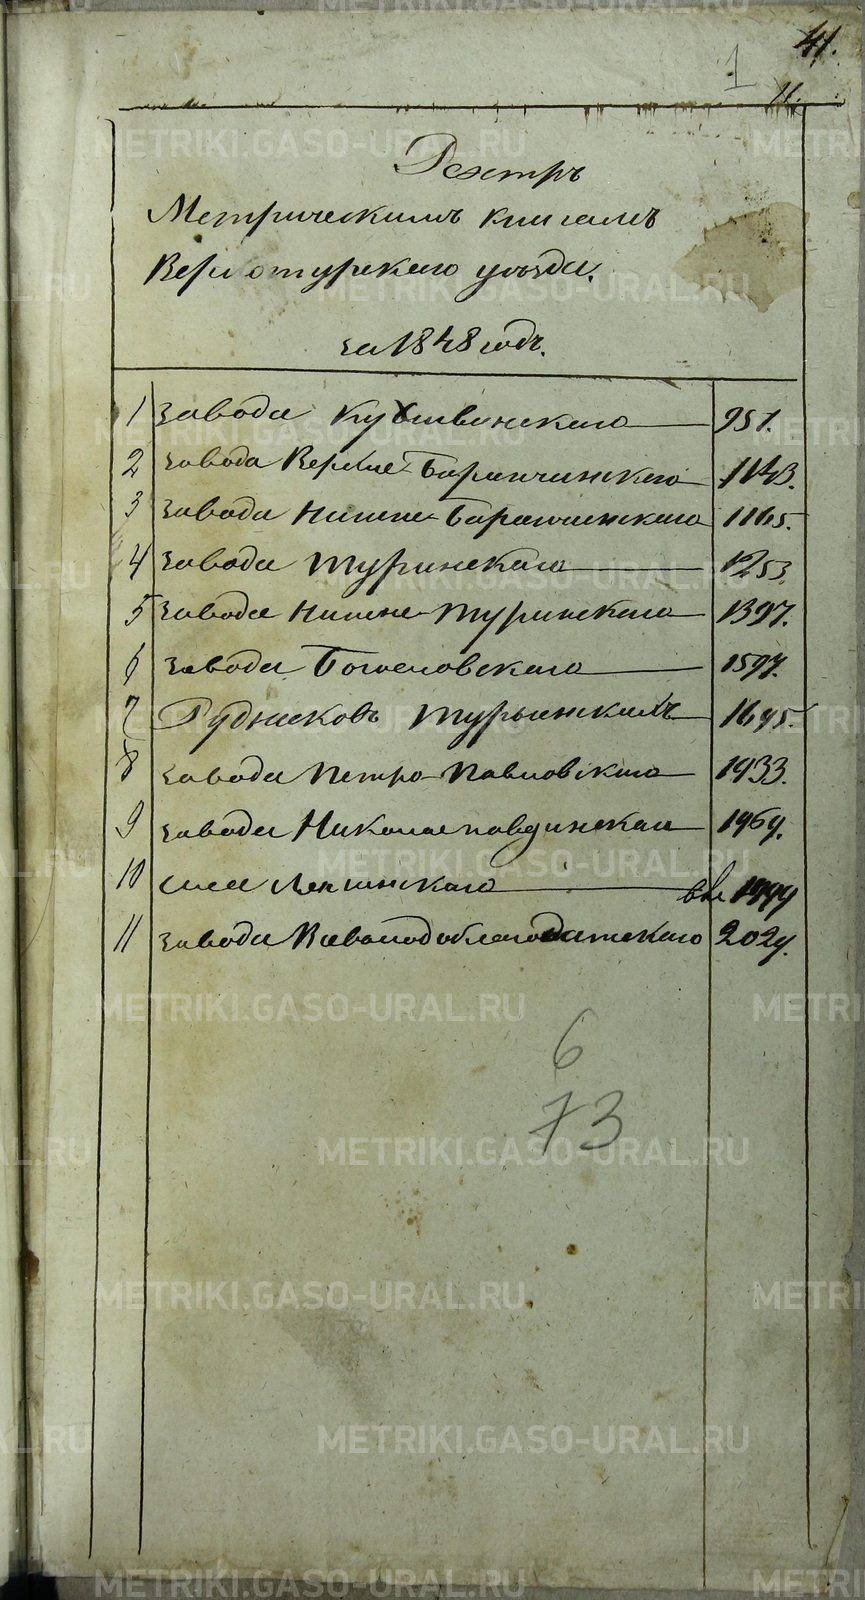 41.
1
11.
Реэстръ
Метрическимъ книгамъ
Верхотурскаго уѣзда.
за 1848 годъ.
1 завода Кушвинскаго 957.
2 завода Верхне-Баранчинскаго 1143.
3 завода Нижне-Баранчинскаго 1165.
4 завода Туринскаго 1253.
5 завода Нижне-Туринскаго 1397.
6 завода Богословскаго 1597.
7 Рудниковъ Турьинскихъ 1695.
8 завода Петро-Павловскаго 1933.
9 завода Николаепавдинскаго 1969.
10 села Лялинскаго 1999
11 завода Всеволодоблагодатскаго 2029.
6
73
METRIKI.GASO-URAL.RU